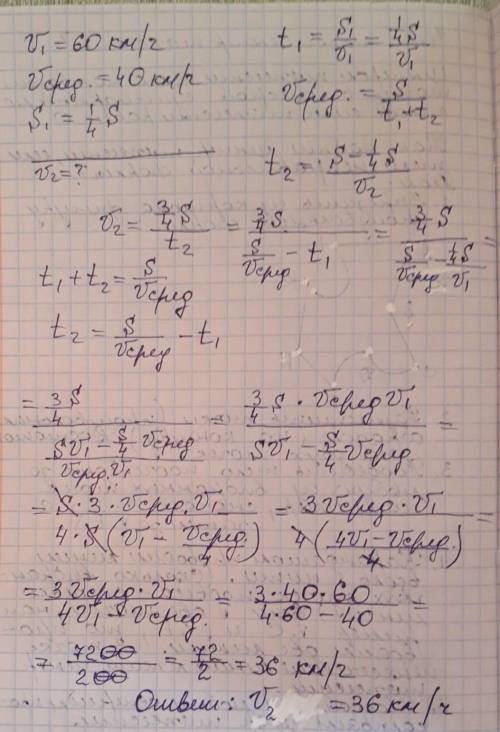 v₁ = 60 км/ч
t₁ = S₁/v₁ = (1/4 S)/v₁
vсред. = 40 км/ч
vсред. = S/(t₁+t₂)
S₁ = 1/4 S
v₂ = ?
t₂ = (S − 1/4 S)/v₂
v₂ = (3/4 S)/t₂ = (3/4 S)/(S/vсред − t₁) = (3/4 S)/(S/vсред − (1/4 S)/v₁) =
t₁ + t₂ = S/vсред
t₂ = S/vсред − t₁
= (3/4 S)/((Sv₁ − S/4 vсред)/(vсред.v₁)) = (3/4 S · vсред v₁)/(Sv₁ − S/4 vсред) =
= (S·3·vсред.v₁)/(4·S(v₁ − vсред./4)) = (3vсред·v₁)/(4((4v₁ − vсред.)/4)) =
= (3vсред·v₁)/(4v₁ − vсред.) = (3·40·60)/(4·60−40) =
= 7200/200 = 72/2 = 36 км/ч
Ответ: v₂ = 36 км/ч